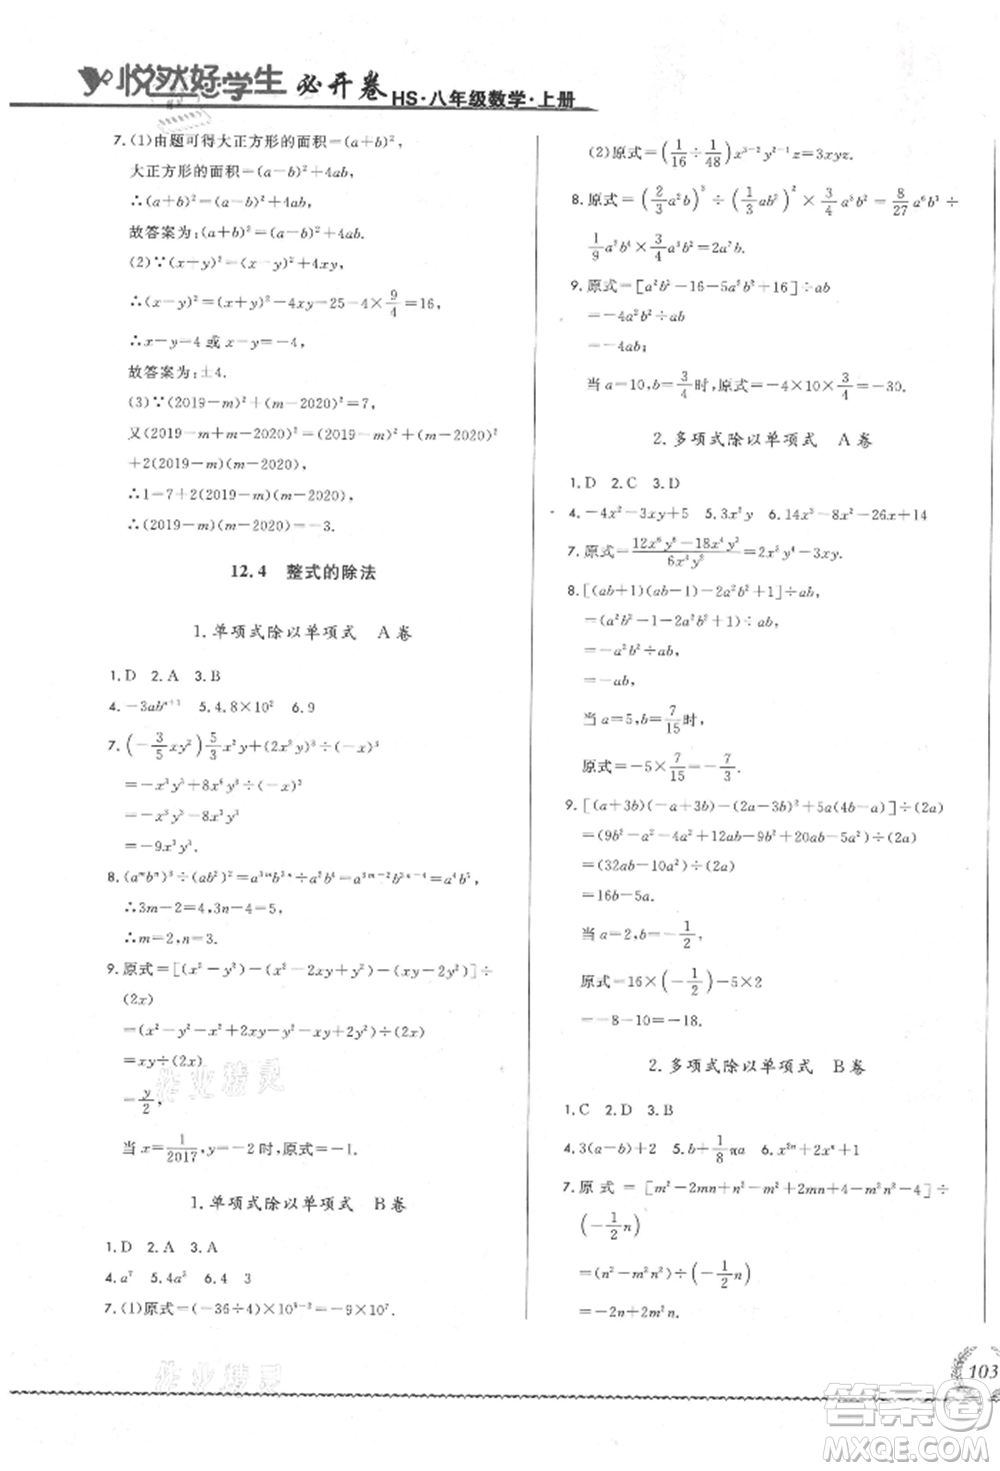 悦然好学生 必开卷 HS·八年级数学·上册
7.(1)由题可得大正方形的面积=(a+b)²,
大正方形的面积=(a-b)²+4ab,
∴(a+b)²=(a-b)²+4ab,
故答案为:(a+b)²=(a-b)²+4ab.
(2)∵(x+y)²=(x-y)²+4xy,
∴(x-y)²=(x+y)²-4xy=25-4×9/4=16,
∴x-y=4 或 x-y=-4.
故答案为:±4.
(3)∵(2019-m)²+(m-2020)²=7,
又(2019-m+m-2020)²=(2019-m)²+(m-2020)²
+2(2019-m)(m-2020),
∴1=7+2(2019-m)(m-2020)
∴(2019-m)(m-2020)=-3.
12.4 整式的除法
1.单项式除以单项式 A卷
1.D 2.A 3.B
4.-3abⁿ⁺¹ 5.4.8×10² 6.9
7.(-3/5xy²)5/3x²y+(2x²y)³÷(-x)³
=-x³y³+8x⁶y³÷(-x³)
=-x³y³-8x³y³
=-9x³y³.
8.(aᵐbⁿ)³÷(ab²)²=a³ᵐb³ⁿ÷a²b⁴=a⁴b⁵,
∴3m-2=4,3n-4=5,
∴m=2,n=3.
9.原式=[(x²-y²)-(x²-2xy+xy-2y²)]÷
(2x)
=(x²-y²-x²+2xy-xy+2y²)÷(2x)
=xy÷(2x)
=y/2,
当x=1/2017,y=-2时,原式=-1.
1.单项式除以单项式 B卷
1.D 2.A 3.A
4.a⁷ 5.4a³ 6.4 3
7.(1)原式=(-36÷4)×10⁹⁻²=-9×10⁷.
(2)原式=(1/16÷1/48)x³⁻²y²⁻¹z=3xyz.
8.原式=(2/3a²b)³÷(1/3ab²)²×3/4a³b²=8/27a⁶b³÷
1/9a²b⁴×3/4a³b²=2a⁷b.
9.原式=[a²b²-16-5a²b²+16]÷ab
=-4a²b²÷ab
=-4ab;
当a=10,b=3/4时,原式=-4×10×3/4=-30.
2.多项式除以单项式 A卷
1.D 2.C 3.D
4.-4x²-3xy+5 5.3x²y 6.14x³-8x²-26x+14
7.原式=(12x⁶y⁶-18x⁴y³)/(6x³y²)=2x³y⁴-3xy.
8.[(ab+1)(ab-1)-2a²b²+1]÷ab,
=(a²b²-1-2a²b²+1)÷ab,
=-a²b²÷ab,
=-ab,
当a=5,b=7/15时,
原式=-5×7/15=-7/3.
9.[(a+3b)(-a+3b)-(2a-3b)²+5a(4b-a)]÷(2a)
=(9b²-a²-4a²+12ab-9b²+20ab-5a²)÷(2a)
=(32ab-10a²)÷(2a)
=16b-5a.
当a=2,b=-1/2,
原式=16×(-1/2)-5×2
=-8-10=-18.
2.多项式除以单项式 B卷
1.C 2.D 3.B
4.3(a-b)+2 5.b+1/8πa 6.x²ⁿ+2xⁿ+1
7.原式=[m²-2mn+n²-m²+2mn+4-m²n²-4]÷
(-1/2n)
=(n²-m²n²)÷(-1/2n)
=-2n+2m²n.
103
作业精灵
作业精灵
答案圈
MXQE.COM